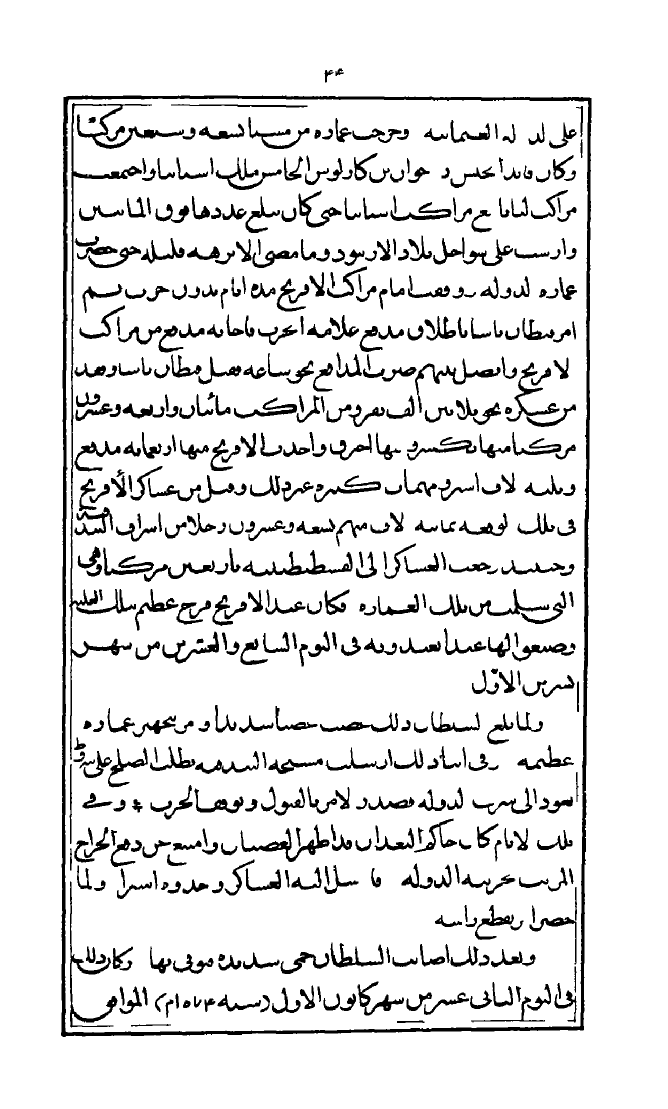 ٤٤
على لدوله العثمانيه وخرجت عماره من مسينا تسعه وسبعين مركبا
وكان قائدا بحيش جوان بن كارلوس الخامس ملك اسبانيا واجتمعت
مراكب لبابا مع مراكب اسبانيا حتى كان يبلغ عددها فوق المائتين
وارست على سواحل بلاد الارنود وما مضى الا برهه قليله حتى حضرت
عماره لدوله ووقفت امام مراكب الافرنج مده ايام بدون حرب ثم
امر قبطان باشا باطلاق مدفع علامه الحرب فاجابه مدفع من مراكب
لافرنج واتصل بينهم ضرب المدافع نحو ساعه فقتل قبطان باشا وفقد
من عسكره نحو ثلاثين الف نفر ومن المراكب مائتان واربعه وعشرون
مركبا منها تكسر ومنها احترق واخذت الافرنج منها اربعمايه مدفع
وثلثه لاف اسير ومهمات كثيره غير ذلك وقتل من عساكر الأفرنج
في تلك لوقعه ثمانيه لاف منهم تسعه وعشرون رجلا من اشراف البندقيه
وحينئذ رجعت العساكر الى القسطنطينيه باربعين مركبا وهي
التي سلمت من تلك العماره فكان عند الافرنج فرح عظيم بتلك الغلبه
وصنعوا لها عيدا يعيدونه في اليوم السابع والعشرين من شهر
تشرين الاوّل
ولما بلغ لسطان ذلك غضب غضبا شديدا وامر بتجهيز عماره
عظيمه وفي اثنا ذلك ارسلت مشيخه البندقيه بطلب الصلح على
يعود الى لدوله فصدر لامر بالقبول وتوقف الحرب * وفي
تلك لايام كان حاكم البغدان قد اظهر العصيان وامتنع عن دفع الخراج
المرتب لخزينه الدوله فارسل اليه العساكر واخذوه اسيرا ولما
حضر امر بقطع راسه
وبعد ذلك اصابت السلطان حمى شديده فتوفي بها وكان ذلك
في اليوم الثاني عشر من شهر كانون الاول (سنه ١٥٧٤م) الموافق